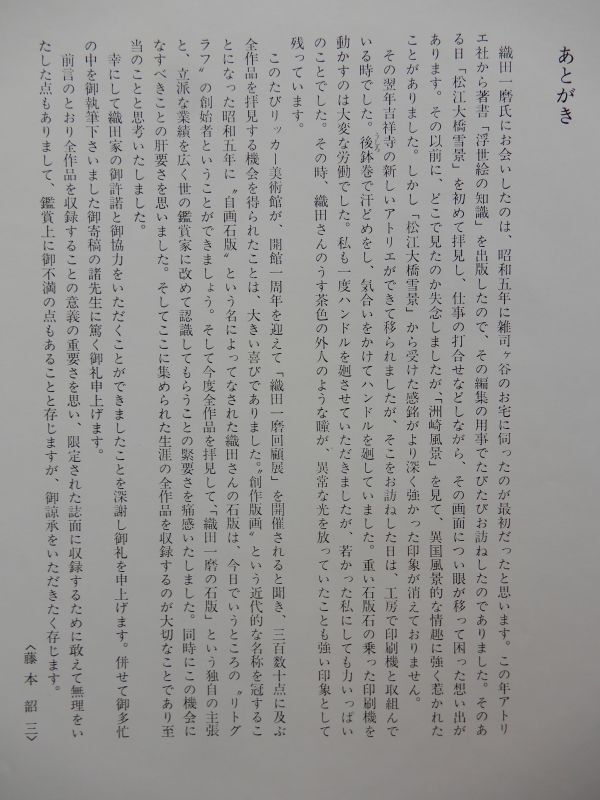 あとがき
織田一磨氏にお会いしたのは、昭和五年に雑司ヶ谷のお宅に伺ったのが最初だったと思います。この年アトリ
エ社から著書「浮世絵の知識」を出版したので、その編集の用事でたびたびお訪ねしたのでありました。そのあ
る日「松江大橋雪景」を初めて拝見し、仕事の打合せなどしながら、その画面につい眼が移って困った想い出が
あります。その以前に、どこで見たのか失念しましたが、「洲崎風景」を見て、異国風景的な情趣に強く惹かれた
ことがありました。しかし「松江大橋雪景」から受けた感銘がより深く強かった印象が消えておりません。
その翌年吉祥寺の新しいアトリエができて移られましたが、そこをお訪ねした日は、工房で印刷機と取組んで
いる時でした。後鉢巻で汗どめをし、気合いをかけてハンドルを廻していました。重い石版石の乗った印刷機を
動かすのは大変な労働でした。私も一度ハンドルを廻させていただきましたが、若かった私にしても力いっぱい
のことでした。その時、織田さんのうす茶色の外人のような瞳が、異常な光を放っていたことも強い印象として
残っています。
このたびリッカー美術館が、開館一周年を迎えて「織田一磨回顧展」を開催されると聞き、三百数十点に及ぶ
全作品を拝見する機会を得られたことは、大きい喜びでありました。〝創作版画〟という近代的な名称を冠するこ
とになった昭和五年に〝自画石版〟という名によってなされた織田さんの石版は、今日でいうところの〝リトグ
ラフ〟の創始者ということができましょう。そして今度全作品を拝見して、「織田一磨の石版」という独自の主張
と、立派な業績を広く世の鑑賞家に改めて認識してもらうことの緊要さを痛感いたしました。同時にこの機会に
なすべきことの肝要さを思いました。そしてここに集められた生涯の全作品を収録するのが大切なことであり至
当のことと思考いたしました。
幸にして織田家の御許諾と御協力をいただくことができましたことを深謝し御礼を申上げます。併せて御多忙
の中を御執筆下さいました御寄稿の諸先生に篤く御礼申上げます。
前言のとおり全作品を収録することの意義の重要さを思い、限定された誌面に収録するために敢えて無理をい
たした点もありまして、鑑賞上に御不満の点もあることと存じますが、御諒承をいただきたく存じます。
〈藤本韶三〉